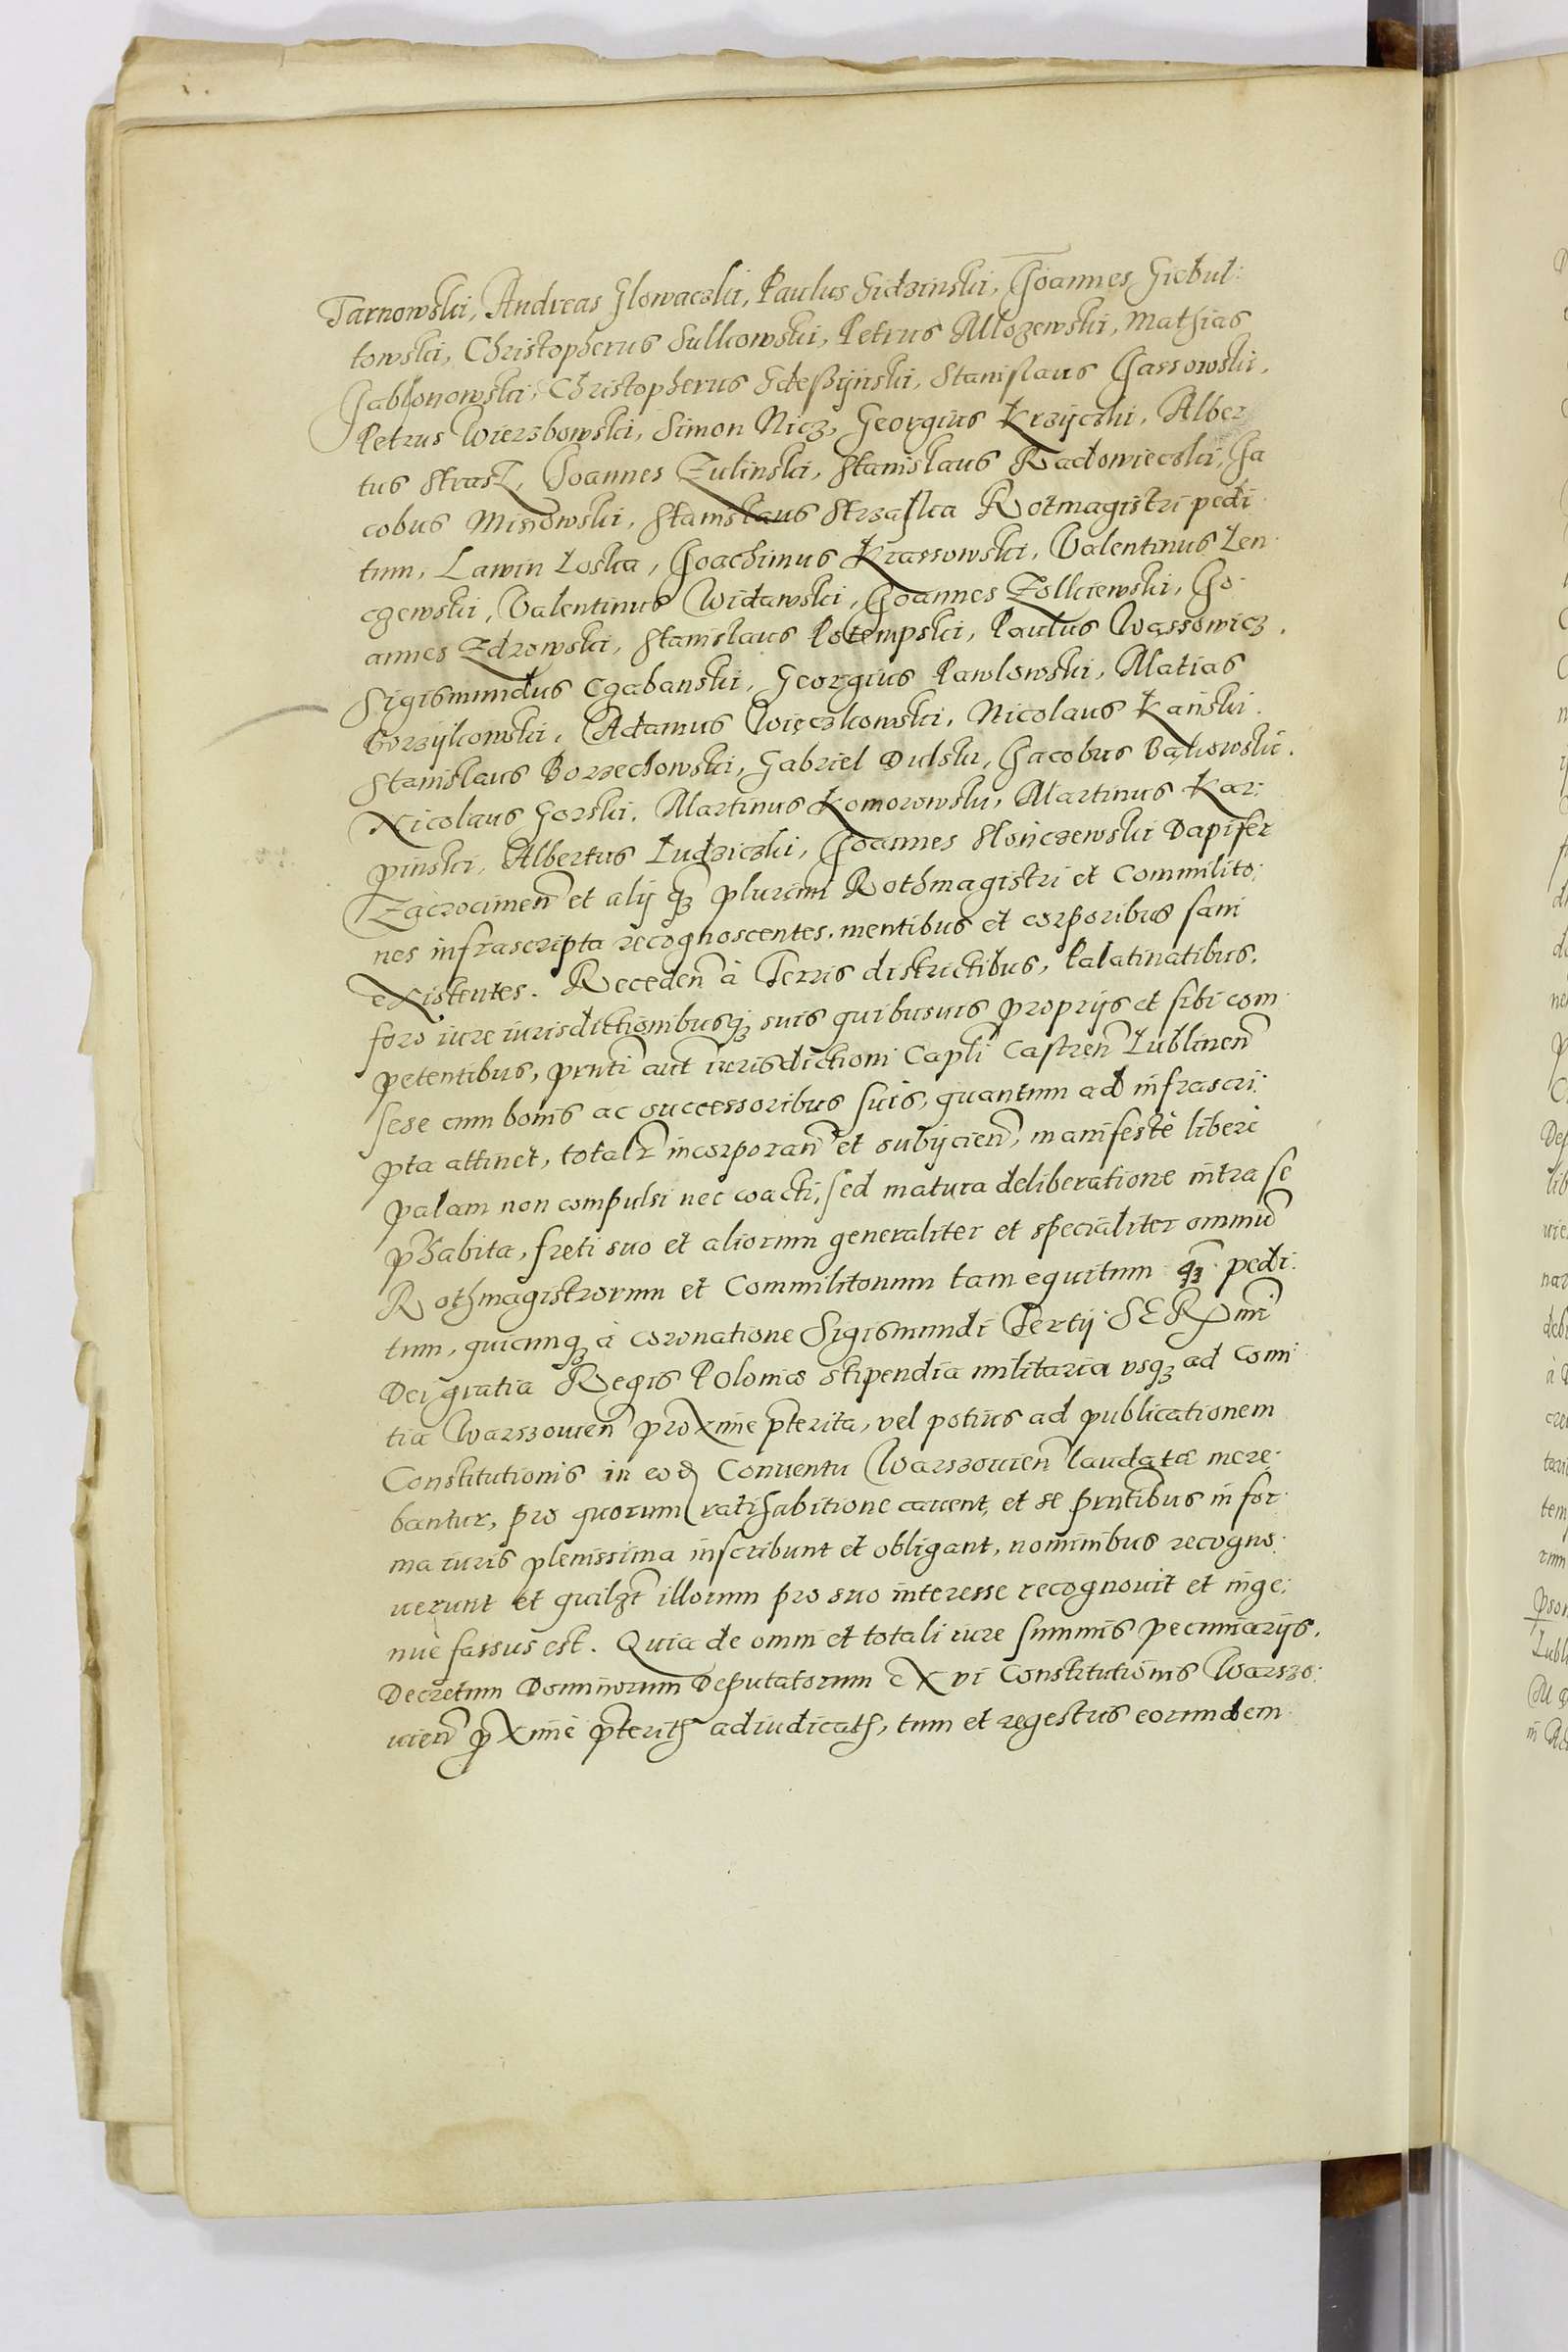 Tarnowski, Andreas Glowaczki, Paulus Gidzinski, Joannes Giebul:
towski, Christopherus Sulkowski, Petrus Mlozewski, Mathias
Jablonowski, Christopherus Gdeßÿnski, Stanislaus Jassowski,
Petrus Wierzbowski, Simon Nicz, Georgius Krzÿczki, Alber
tus Strasz, Joannes Zulinski, Stanislaus Radowieczki, Ja
cobus Misiowski, Stanislaus Strzaſka Rotmagistri pedi
tum, Lawin Łoska, Joachimus Krassowski, Valentinus Łen
czewski, Valentinus Widawski, Joannes Zolkiewski, Jo
annes Zdrowski, Stanislaus Potempski, Paulus Wąssowicz,
Sigismundus Czabanski, Georgius Pawlowski, Matias
Borzÿkowski, Adamus Więczkowski, Nicolaus Kański.
Stanislaus Borzechowski, Gabriel Dulski, Jacobus Bąkowski.
Nicolaus Gorski, Martinus Komorowski, Martinus Kar:
pinski, Albertus Łudziczki, Joannes Słończewski Dapifer
Zacrocimeñ et alij qȝ plurimi Rothmagistri et Commilito:
nes infrascripta recognoscentes, mentibus et corporibus sani
existentes. Recedeñ à Terris districtibus, Palatinatibus,
foro iure iurisdictionibusqȝ suis quibusuis proprijs et sibi com
petentibus, prnti aut iurisdictioni Capli Castreñ Lublineñ
sese cum bonis ac successoribus suis, quantum ad infrascri:
pta attinet, totalr incorporañ et subijcieñ, manifestè liberè
palam non compulsi nec coacti, sed matura deliberatione intra se
phabita, freti suo et aliorum generaliter et specialiter omniũ
Rothmagistrorum et Commilitonum tam equitum qȝ pedi:
tum, quicunqȝ à coronatione Sigismundi Tertij SERmi
Dei gratia Regis Poloniæ stipendia militaria vsqȝ ad Comi
tia Warszouieñ proxime pterita, vel potius ad publicationem
Constitutionis in eod Conuentu Warszouieñ laudatæ mere:
bantur, pro quorum ratihabitione cauent, et se prntibus in for
ma iuris plenissima inscribunt et obligant, nominibus recogno:
uerunt et quilzt illorum pro suo interesse recognouit et inge:
nuè fassus est. Quia de omni et totali iure summis pecuniarijs,
Decretum Dominorum Deputatorum ex vi Constitutionis Warszo:
uieñ pximè pterith adiudicath, tum et regestris eorundem